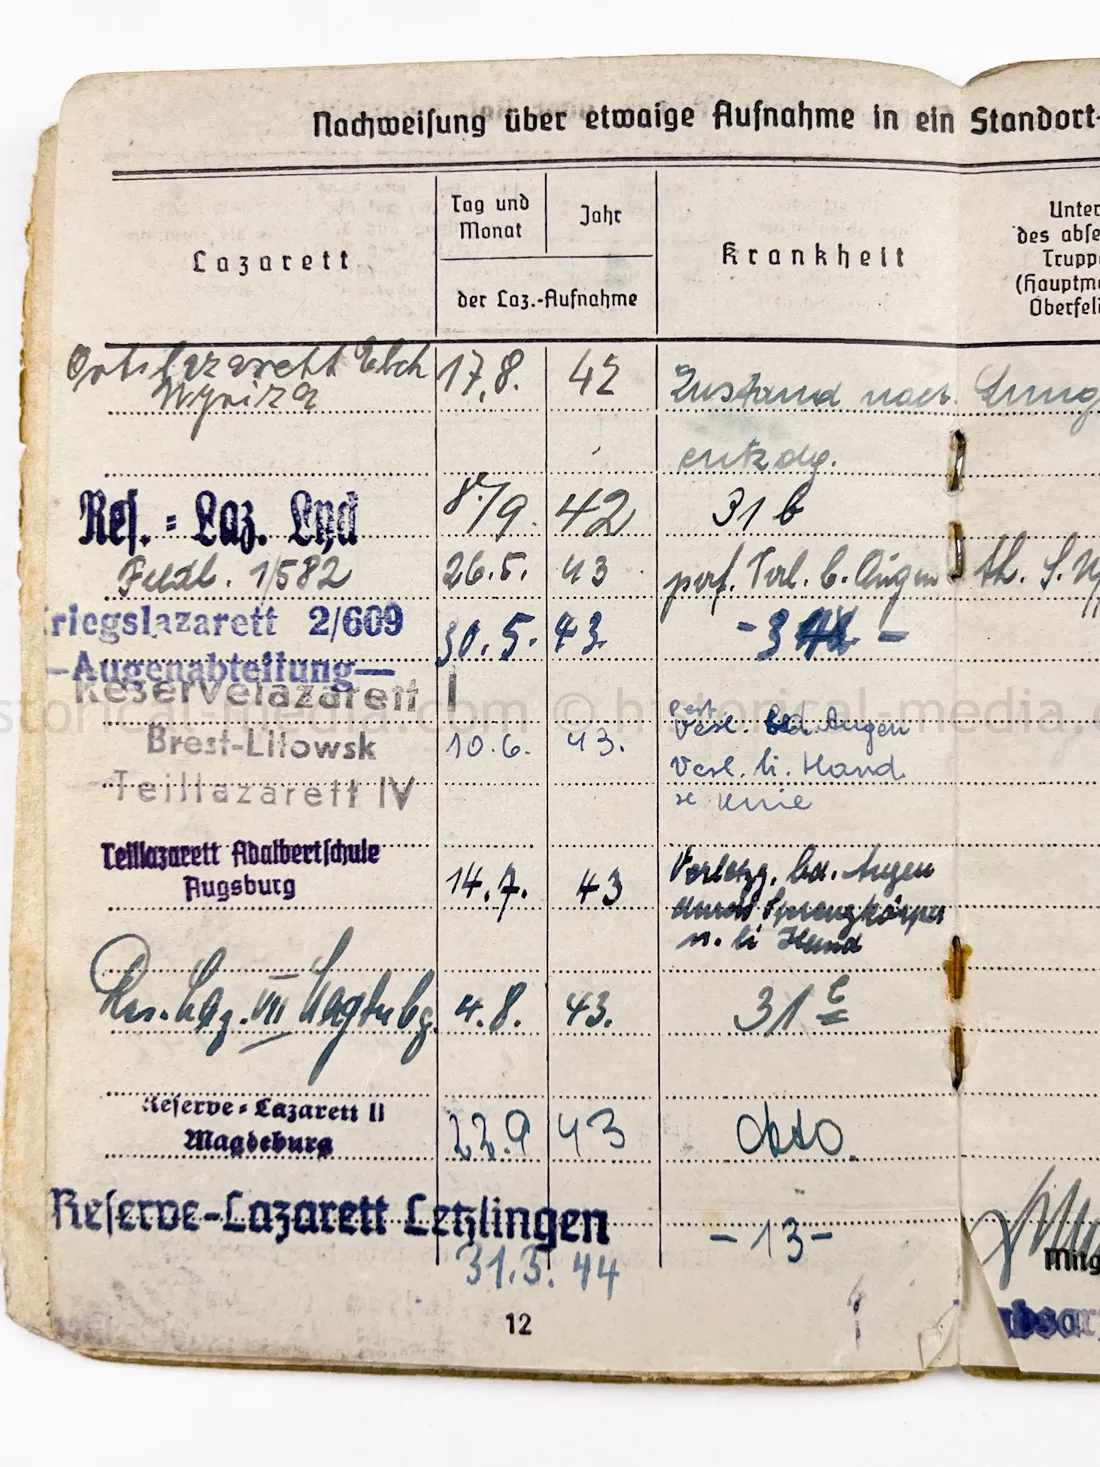 Nachweisung über etwaige Aufnahme in ein Standort-
Lazarett
Tag und
Monat
Jahr
der Laz.-Aufnahme
Krankheit
Unter
des abse
Trupp
(Hauptm
Oberfel
Ortslazarett
17.8. 42 Zustand nach Lung
entzdg.
Res. = Laz. Lyck
8/9. 42 31 b
Feldl. 1/582 26.5. 43 perf. Verl. b. Augen
riegslazarett 2/609
30.5. 43.
—Augenabteilung—
Reservelazarett I
Brest-Litowsk
Teillazarett IV
10.6. 43. Verl. bd. Augen
Verl. li. Hand
Knie
historical-media.com © historical-media.c
Teillazarett Adalbertschule
Augsburg
14.7. 43 Verletzg. bd. Augen
durch Sprengkörper
u. li Hand
Res. Laz. VII Magdebg. 4.8. 43. 31
Reserve-Lazarett II
Magdeburg
22.9 43 dto.
Reserve-Lazarett Letzlingen
31.3. 44 -13-
12